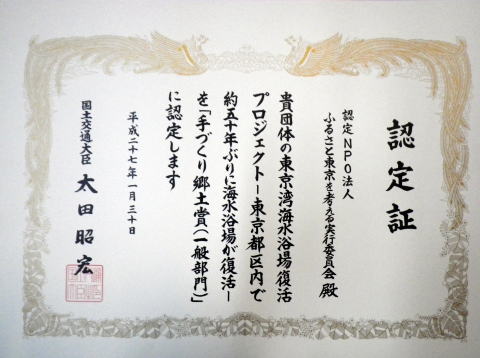 認定証
認定NPO法人
ふるさと東京を考える実行委員会 殿
貴団体の東京湾海水浴場復活
プロジェクトー東京都区内で
約五十年ぶりに海水浴場が復活ー
を「手づくり郷土賞(一般部門)」
に認定します
平成二十七年一月三十日
国土交通大臣 太田昭宏